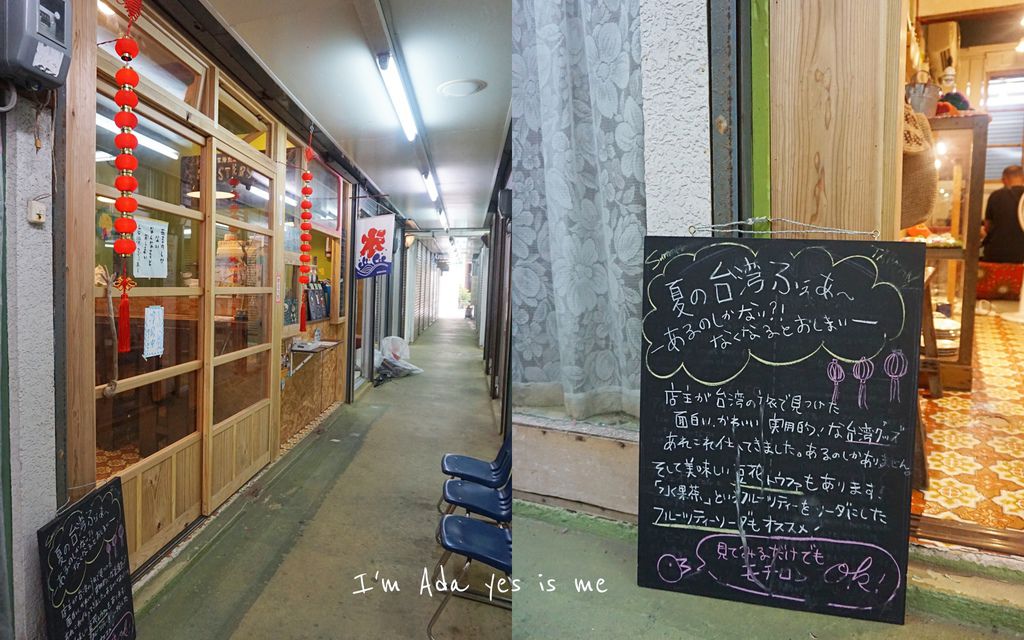 STERS
あるのしか
ない
なくなると
おしまい
氷
夏の台湾ふぇあ〜
I'm Ada yes is me
Summer
夏の台湾ふぇあ〜
ーあるのしかない?!
なくなるとおしまいー
店主が台湾の旅で見つけた
面白い、かわいい 実用的!な台湾グッズ
あれこれ仕入てきました。あるのしかありません。
そして美味しい豆花トウファもあります!
「水果茶」というフルーツティーをソーダにした
フルーツティーソーダもオススメ!
見てみるだけでも
モチロン OK!